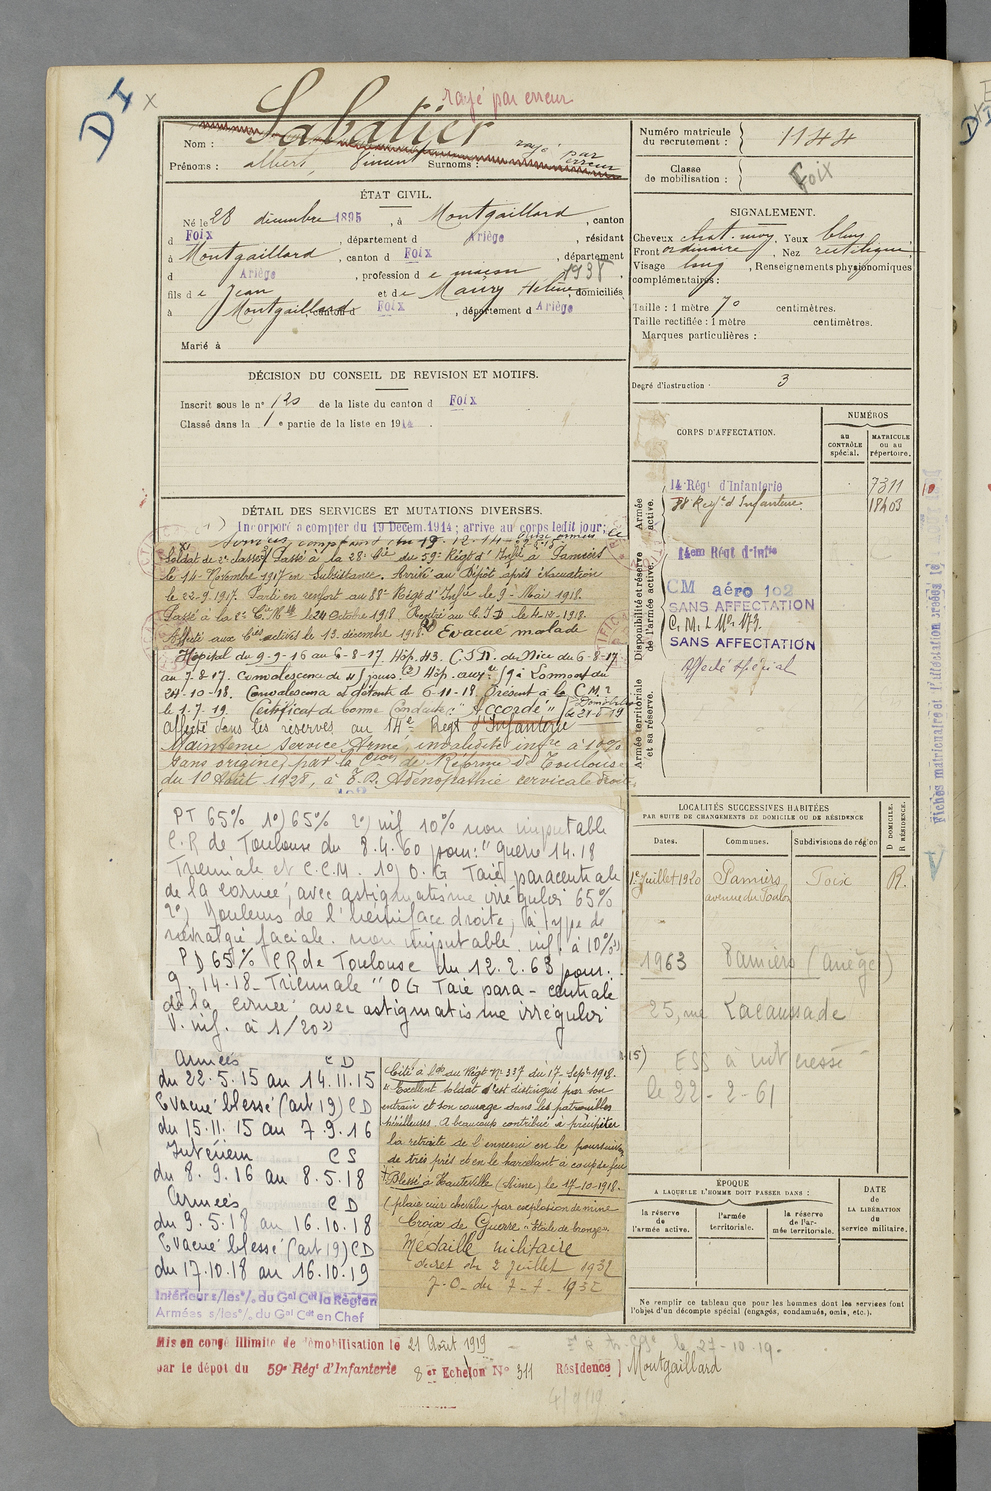 D I
x
rayé par erreur
Numéro matricule du recrutement : 1144
Classe de mobilisation : Foix
Nom : Sabatier
rayé par erreur
Prénoms : albert, Vincent Surnoms :
ÉTAT CIVIL.
Né le 28 décembre 1895, à Montgaillard, canton
d Foix, département d Ariège, résidant
à Montgaillard, canton d Foix, département
d Ariège, profession de maçon 1938.
fils de Jean et de Maury Hélène, domiciliés
à Montgaillard canton d Foix, département d Ariège
Marié à
SIGNALEMENT.
Cheveux chat. moy. Yeux bleus
Front ordinaire, Nez rectiligne
Visage long, Renseignements physionomiques
complémentaires :
Taille : 1 mètre 70 centimètres.
Taille rectifiée : 1 mètre centimètres.
Marques particulières :
Degré d'instruction : 3
DÉCISION DU CONSEIL DE REVISION ET MOTIFS.
Inscrit sous le n° 120 de la liste du canton d Foix
Classé dans la 1e partie de la liste en 1914.
CORPS D'AFFECTATION.
NUMÉROS
au CONTRÔLE spécial.
MATRICULE ou au répertoire.
Armée active.
14 Régt d'Infanterie 7311
Regt d'Infanterie. 18403
Disponibilité et réserve de l'armée active.
14em Régt d'Inftie
CM aéro 102
SANS AFFECTATION
SANS AFFECTATION
Affecté spécial
Armée territoriale et sa réserve.
DÉTAIL DES SERVICES ET MUTATIONS DIVERSES.
Incorporé a compter du 19 Decem. 1914 ; arrive au corps ledit jour ;
Soldat de 2e classe. Passé à la 28e Cie du 59e Régt d'Infie à Pamiers
le 14 Novembre 1917 en Subsistance. Arrivé au Dépôt après évacuation
le 22-9-1917. Parti en renfort au 88e Régt d'Infie le 9 Mai 1918.
Passé à la 2e Cie Mlle le 24 Octobre 1918. Rentré au C.I.D. le 4-12-1918.
Affecté aux Cies actives le 19 décembre 1918. Evacué malade
Hôpital du 9-9-16 au 6-8-17. Hôp. 43. C.S.R. de Nice du 6-8-17
au 7-8-17. Convalescence de 45 jours.
24-10-18. Convalescence et détente du 6-11-18. Présent à la C.M.2
le 1-7-19. Certificat de bonne Conduite : "Accordé"
affecté dans les réserves au 14e Regt d'Infanterie
Maintenu Service Armé, invalidité infre à 10%
sans origine, par la Cion de Réforme de Toulouse
du 10 Août 1928, à T.P. Adénopathie cervicale droite
102
PT 65% 1°) 65% 2°) inf 10% non imputable
C.R de Toulouse du 8.4.60 pour : "guerre 14.18
Triennale et C.C.M. 1°) O.G Taie paracentrale
de la cornée, avec astigmatisme irrégulier 65%
2°) Douleurs de l'hémiface droite, à type de
névralgie faciale. non imputable. inf. à 10%"
PD 65% CR de Toulouse du 12.2.63 pour :
g. 14.18 - Triennale "OG Taie para-centrale
de la cornée avec astigmatisme irrégulier
V. inf. à 1/20"
Armées CD
du 22.5.15 au 14.11.15
Evacué blessé (art 19) CD
du 15.11.15 au 7.9.16
Intérieur CS
du 8.9.16 au 8.5.18
Armées CD
du 9.5.18 au 16.10.18
Evacué blessé (art 19) CD
du 17.10.18 au 16.10.19
Intérieur s/les °/. du Gal Cdt la Région
Armées s/les °/. du Gal Cdt en Chef
Cité à l'ode du Régt N° 337 du 17 Septe 1918.
"Excellent soldat s'est distingué par son
entrain et son courage dans les patrouilles
périlleuses. A beaucoup contribué à précipiter
la retraite de l'ennemi en le poursuivant
de très près et en le harcelant à coups de feu
Blessé à Hauteville (Aisne) le 17-10-1918.
(plaie cuir chevelu par explosion de mine
Croix de Guerre "Etoile de bronze"
Médaille militaire
décret du 2 Juillet 1932
J.O. du 7-7-1932
LOCALITÉS SUCCESSIVES HABITÉES
PAR SUITE DE CHANGEMENTS DE DOMICILE OU DE RÉSIDENCE
Dates. Communes. Subdivisions de région
D. DOMICILE. R. RÉSIDENCE.
1er Juillet 1920 Pamiers Foix R.
avenue de Toulouse
1963 Pamiers (Ariège)
25, rue Lacaussade
ESS à intéressé
le 22-2-61
ÉPOQUE
A LAQUELLE L'HOMME DOIT PASSER DANS :
DATE DE LA LIBÉRATION du service militaire.
la réserve de l'armée active.
l'armée territoriale.
la réserve de l'armée territoriale.
Ne remplir ce tableau que pour les hommes dont les services font
l'objet d'un décompte spécial (engagés, condamnés, omis, etc.).
Mis en congé illimité de démobilisation le 21 Août 1919
par le dépôt du 59e Régt d'Infanterie 8 er Echelon N° 311 Résidence Montgaillard
le 27-10-19.
4/9/19